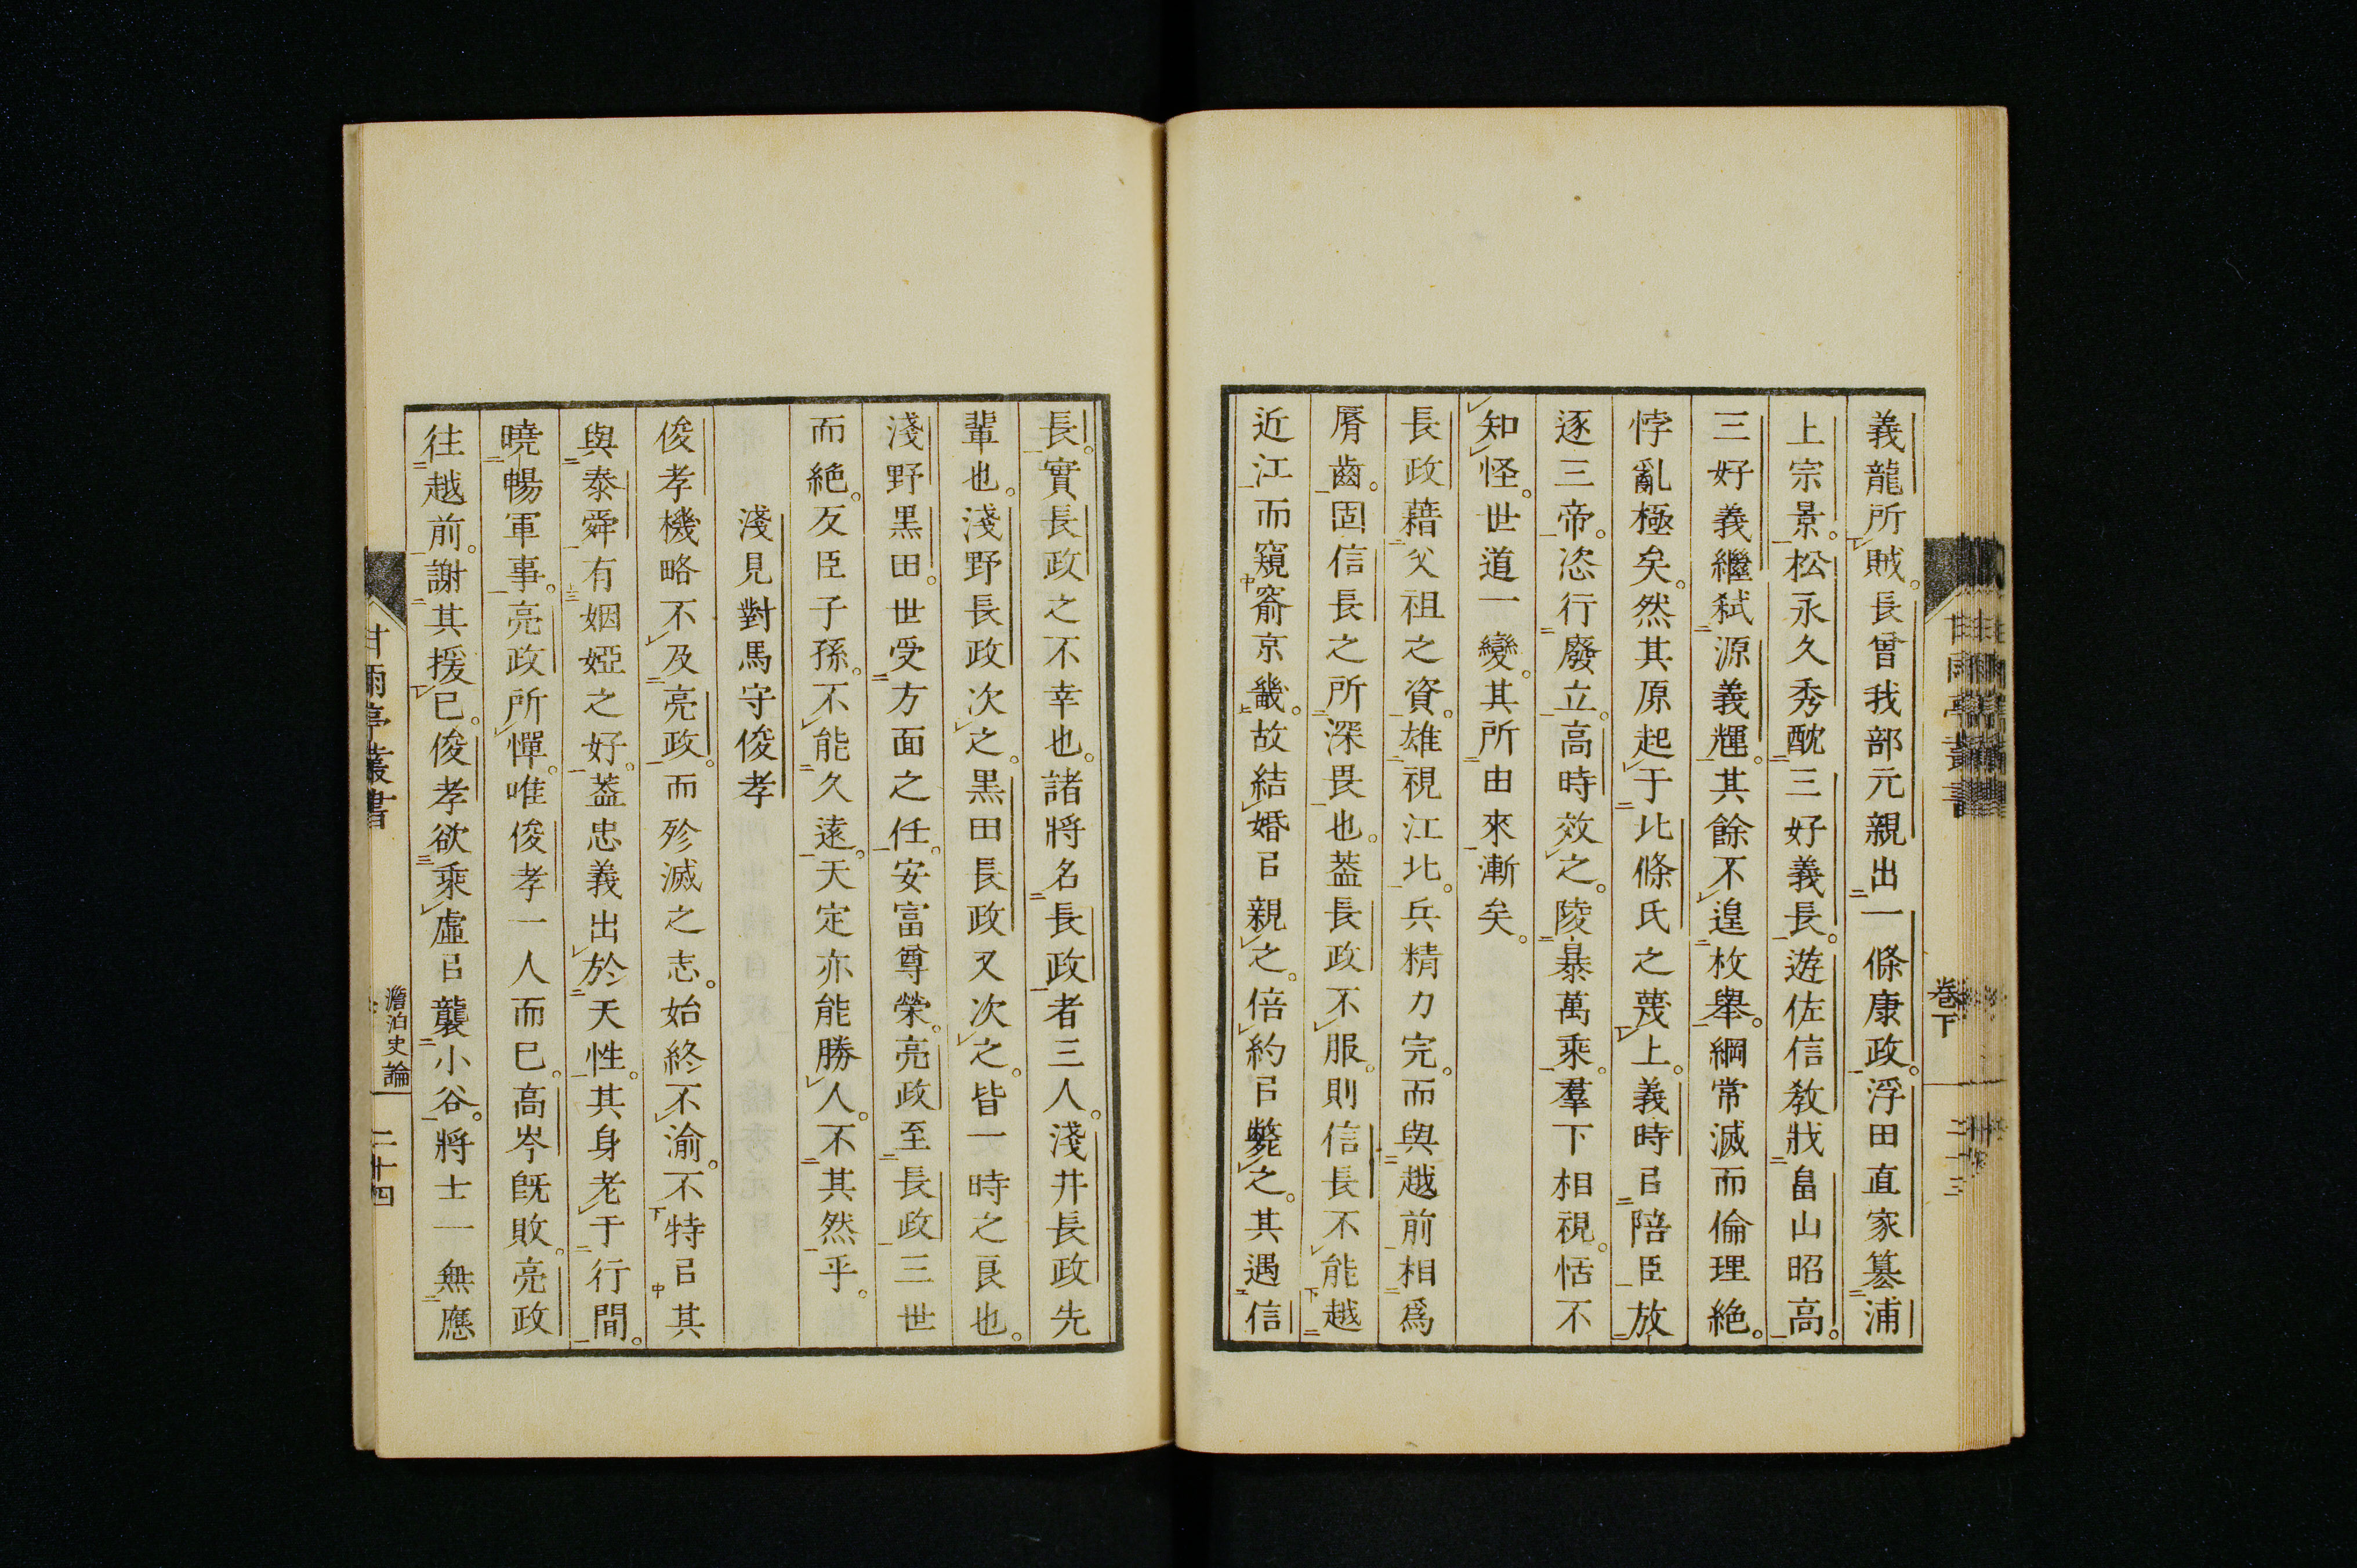 義龍所賊。長曾我部元親出一條康政。浮田直家簒浦
上宗景。松永久秀酖三好義長。遊佐信教戕畠山昭高。
三好義繼弑源義輝。其餘不遑枚舉。綱常滅而倫理絶。
悖亂極矣。然其原起于北條氏之蔑上。義時㠯陪臣放
逐三帝。恣行廢立。高時效之。陵暴萬乘。羣下相視。恬不
知怪。世道一變。其所由來漸矣。
長政藉父祖之資。雄視江北。兵精力完。而與越前相爲
脣齒。固信長之所深畏也。葢長政不服。則信長不能越
近江而窺窬京畿。故結婚㠯親之。倍約㠯斃之。其遇信
卷下
長。實長政之不幸也。諸將名長政者三人。淺井長政先
輩也。淺野長政次之。黒田長政又次之。皆一時之良也。
淺野黒田。世受方面之任。安富尊榮。亮政至長政三世
而絶。反臣子孫。不能久遠。天定亦能勝人。不其然乎。
淺見對馬守俊孝
俊孝機略不及亮政。而殄滅之志。始終不渝。不特㠯其
與泰舜有姻婭之好。葢忠義出於天性。其身老于行間。
曉暢軍事。亮政所憚。唯俊孝一人而已。高岑既敗。亮政
往越前。謝其援已。俊孝欲乘虛㠯襲小谷。將士一無應
甘雨亭叢書
澹泊史論
二十四